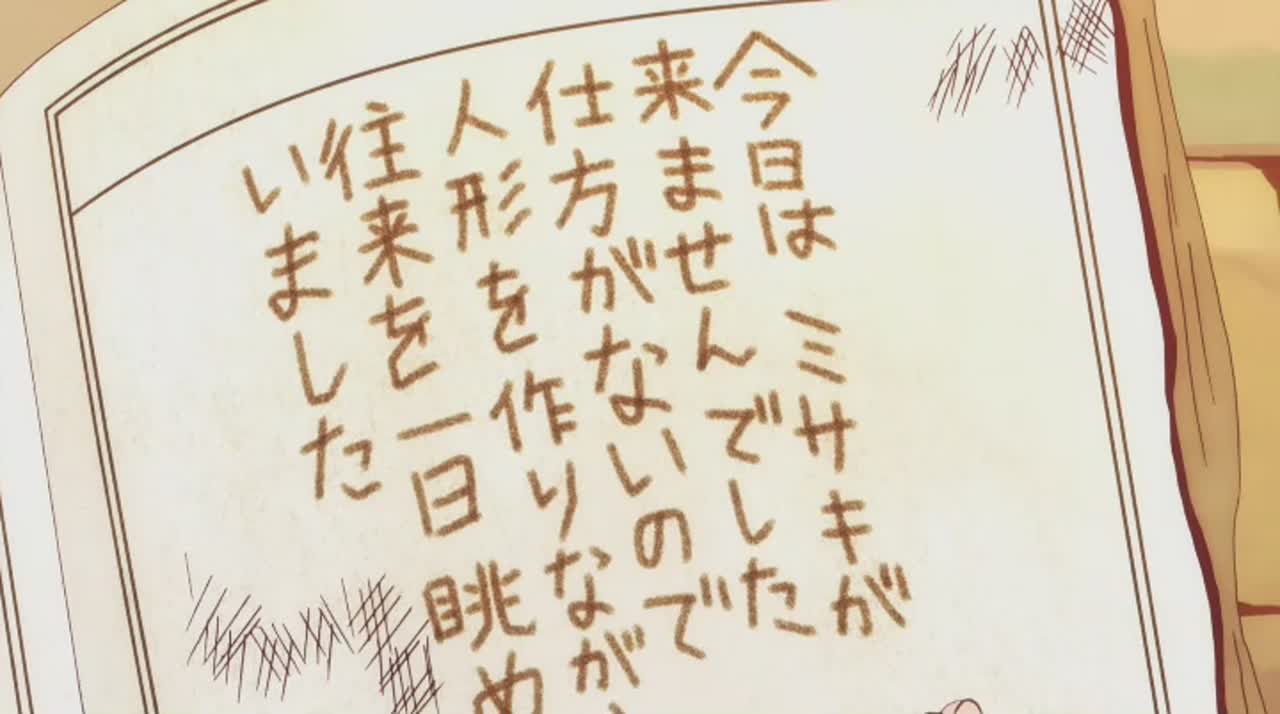 今日は ミサキが
来ませんでした
仕方がないので
人形を作りなが
往来を一日 眺め
いました